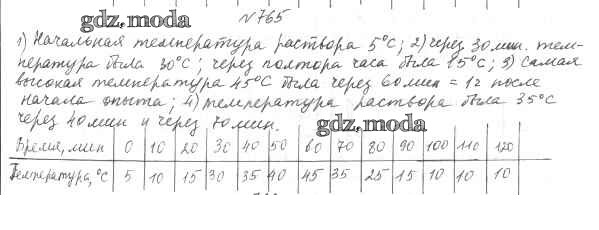 №765
gdz.moda
1) Начальная температура раствора 5°С; 2) через 30 мин. тем-
пература была 30°С; через полтора часа была 15°С; 3) самая
высокая температура 45°С была через 60 мин = 1ч после
начала опыта; 4) температура раствора была 35°С
через 40 мин и через 70 мин.
gdz.moda
Время, мин 0 10 20 30 40 50 60 70 80 90 100 110 120
Температура, °С 5 10 15 30 35 40 45 35 25 15 10 10 10